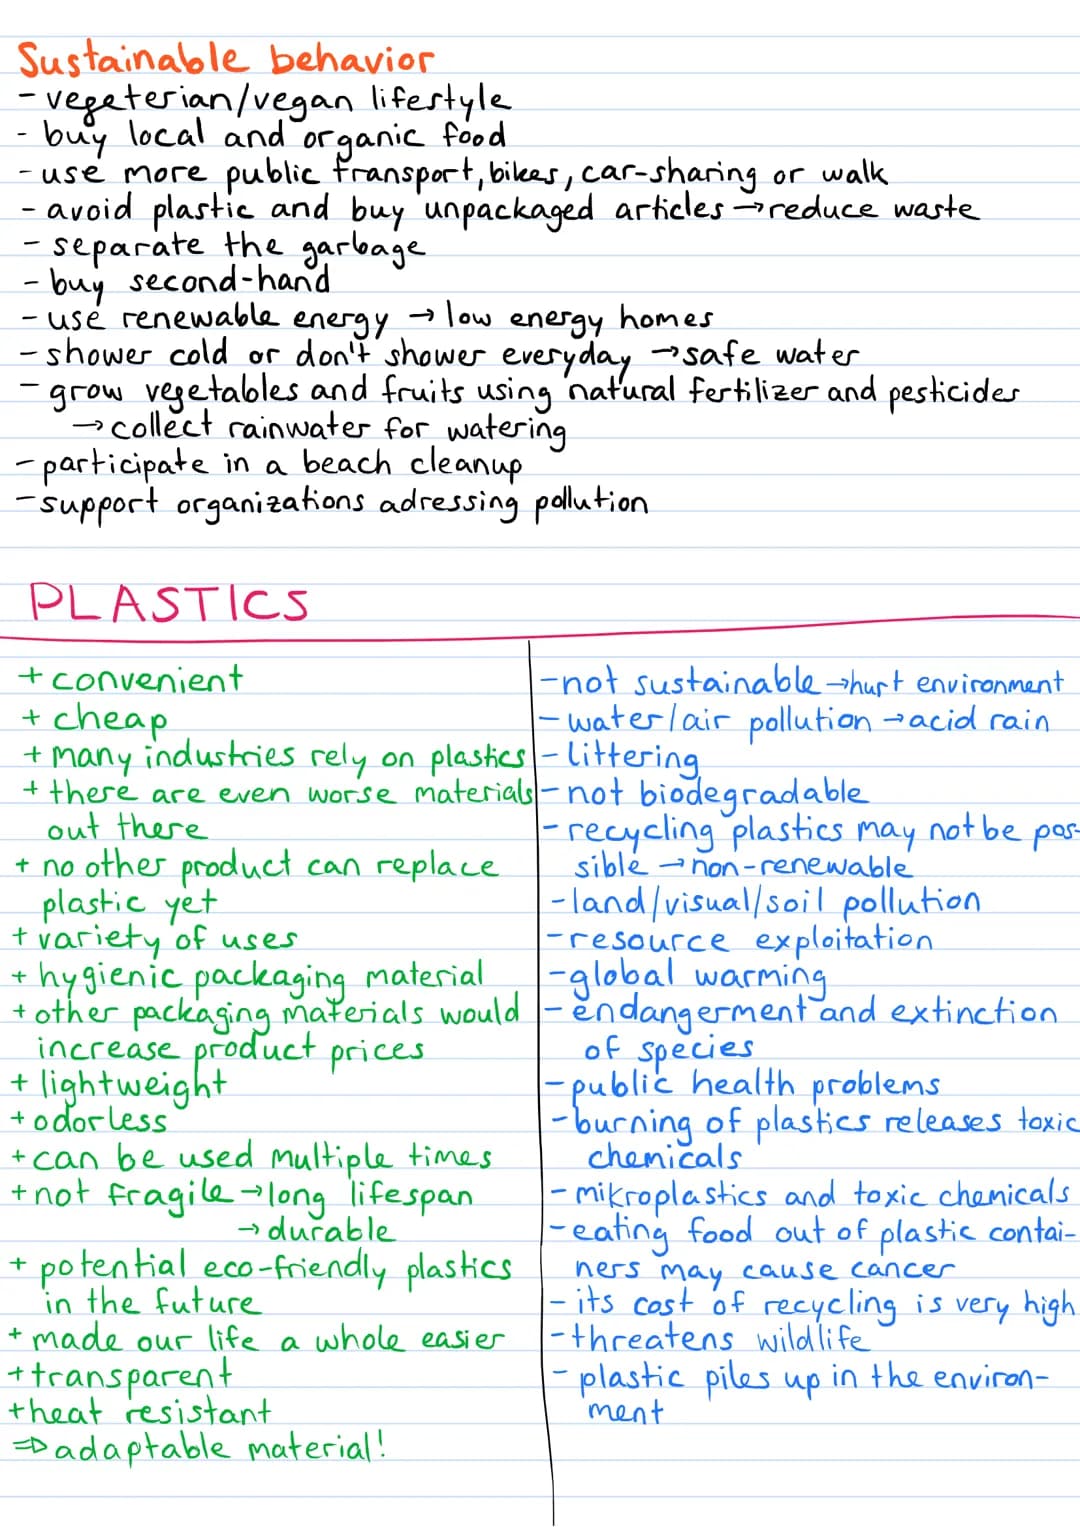 Sustainable behavior
- vegeterian/vegan lifestyle
- buy local and organic food
- use more public transport, bikes, car-sharing or walk
- avoid plastic and buy unpackaged articles → reduce waste
- separate the garbage
- buy second-hand
- use renewable energy → low energy homes
- shower cold or don't shower everyday → safe water
- grow vegetables and fruits using natural fertilizer and pesticides
→ collect rainwater for watering
- participate in a beach cleanup
- support organizations adressing pollution
PLASTICS
+ convenient
+ cheap
+ many industries rely on plastics
+ there are even worse materials
out there
+ no other product can replace
plastic yet
+ variety of uses
+ hygienic packaging material
+ other packaging materials would
increase product prices
+ lightweight
+ odorless
+ can be used multiple times
+ not fragile → long lifespan
→ durable
+ potential eco-friendly plastics
in the future
+ made our life a whole easier
+ transparent
+ heat resistant
⇒ adaptable material!
- not sustainable → hurt environment
- water/air pollution → acid rain
- littering
- not biodegradable
- recycling plastics may not be pos-
sible → non-renewable
- land/visual/soil pollution
- resource exploitation
- global warming
- endangerment and extinction
of species
- public health problems
- burning of plastics releases toxic
chemicals
- mikroplastics and toxic chemicals
- eating food out of plastic contai-
ners may cause cancer
- its cost of recycling is very high
- threatens wildlife
- plastic piles up in the environ-
ment